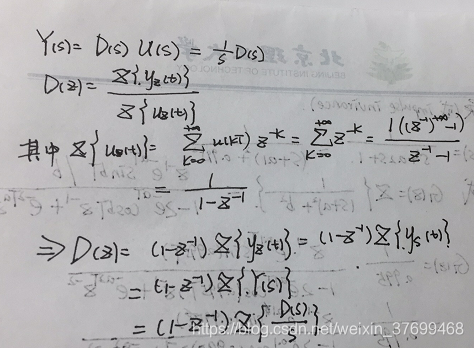 Y(s) = D(s) U(s) = 1/s D(s)
D(z) = Z{y_z(t)} / Z{u_z(t)}
其中 Z{u_z(t)} = ∑_{k=0}^{+∞} u(kT) z^{-k} = ∑_{k=0}^{+∞} z^{-k} = 1((z^{-1})^{+∞} - 1) / (z^{-1} - 1)
= 1 / (1 - z^{-1})
⇒ D(z) = (1-z^{-1}) Z{y_z(t)} = (1-z^{-1}) Z{y_s(t)}
= (1-z^{-1}) Z{Y(s)}
= (1-z^{-1}) Z{D(s)/s}
https://blog.csdn.net/weixin_37699468